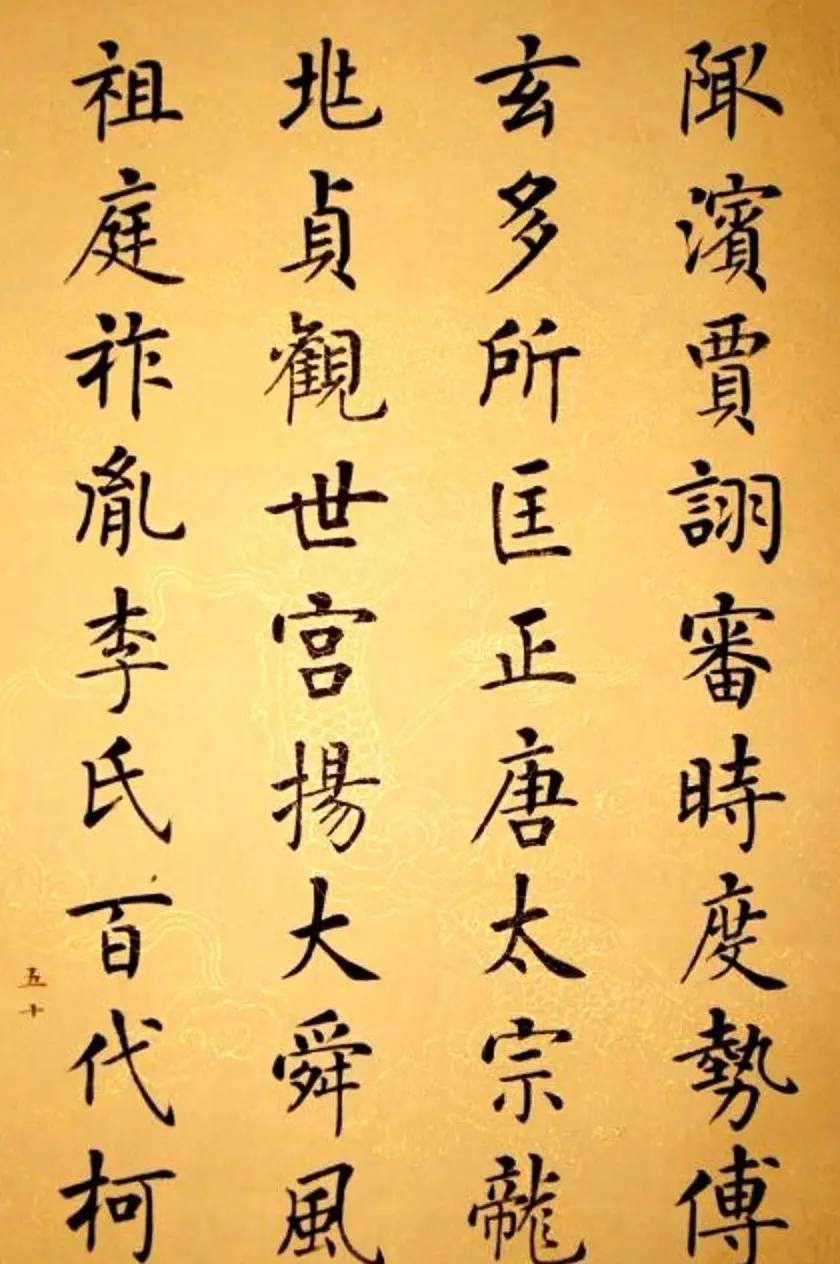 陬濱賈詡審時度勢傅
玄多所匡正唐太宗龍
貞觀世宮揚大舜風
祖庭祚胤李氏百代柯
五十